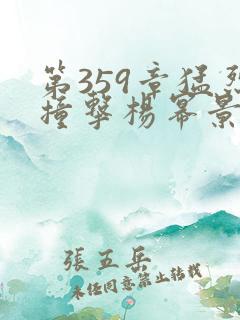 第359章猛烈
撞擊楊冪景
張五岳
未经同意禁止转载